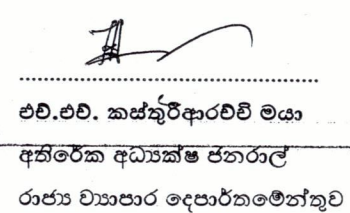 එච්.එච්. කස්තුරිආරච්චි මයා
අතිරේක අධ්‍යක්ෂ ජනරාල්
රාජ්‍ය ව්‍යාපාර දෙපාර්තමේන්තුව